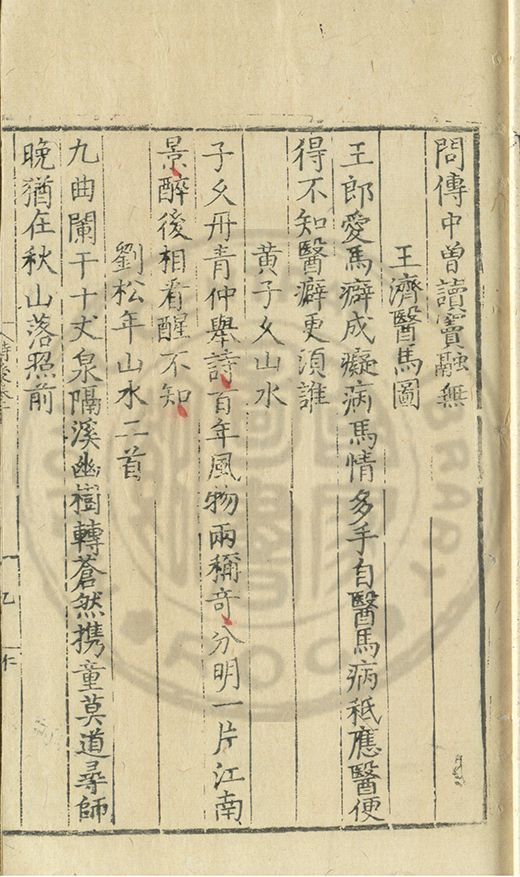 問傳中曾讀竇融無
王濟醫馬圖
王郎愛馬癖成癡病馬情多手自醫馬病秪應醫便
得不知醫癖更須誰
黄子久山水
子久丹青仲舉詩百年風物兩稱奇分明一片江南
景醉後相看醒不知
劉松年山水二首
九曲闌干十丈泉隔溪幽樹轉蒼然携童莫道尋師
晚猶在秋山落照前
乙
仁